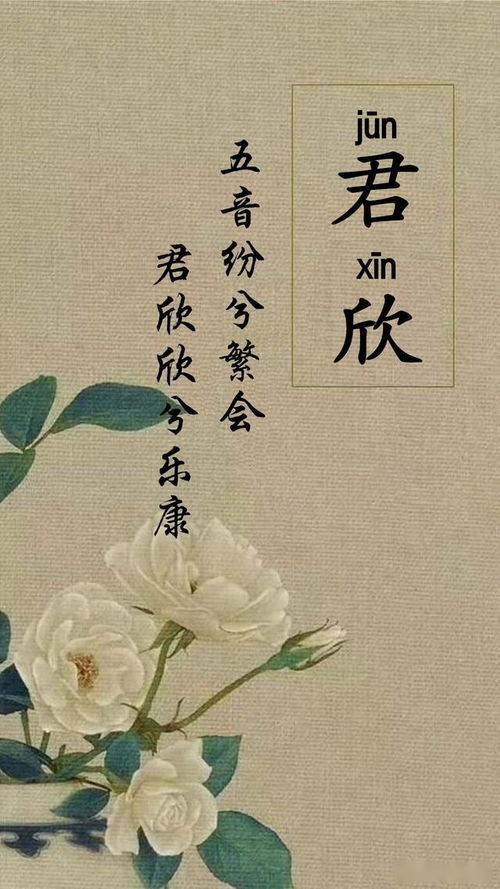 jūn
君
xīn
欣
五音纷兮繁会
君欣欣兮乐康